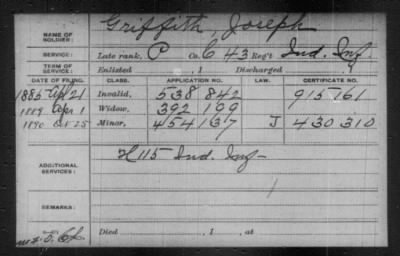 NAME OF SOLDIER: Griffith Joseph
SERVICE: Late rank, P Co. C 43 Reg't Ind. Inf.
TERM OF SERVICE: Enlisted , 1 Discharged , 1
DATE OF FILING. CLASS. APPLICATION NO. LAW. CERTIFICATE NO.
1885 21 Invalid, 538 842 915 161
1889 Apr 1 Widow, 392 199
1890 25 Minor, 454 137 J 430 310
ADDITIONAL SERVICES: H 115 Ind. Inf
REMARKS:
Died , 1 , at